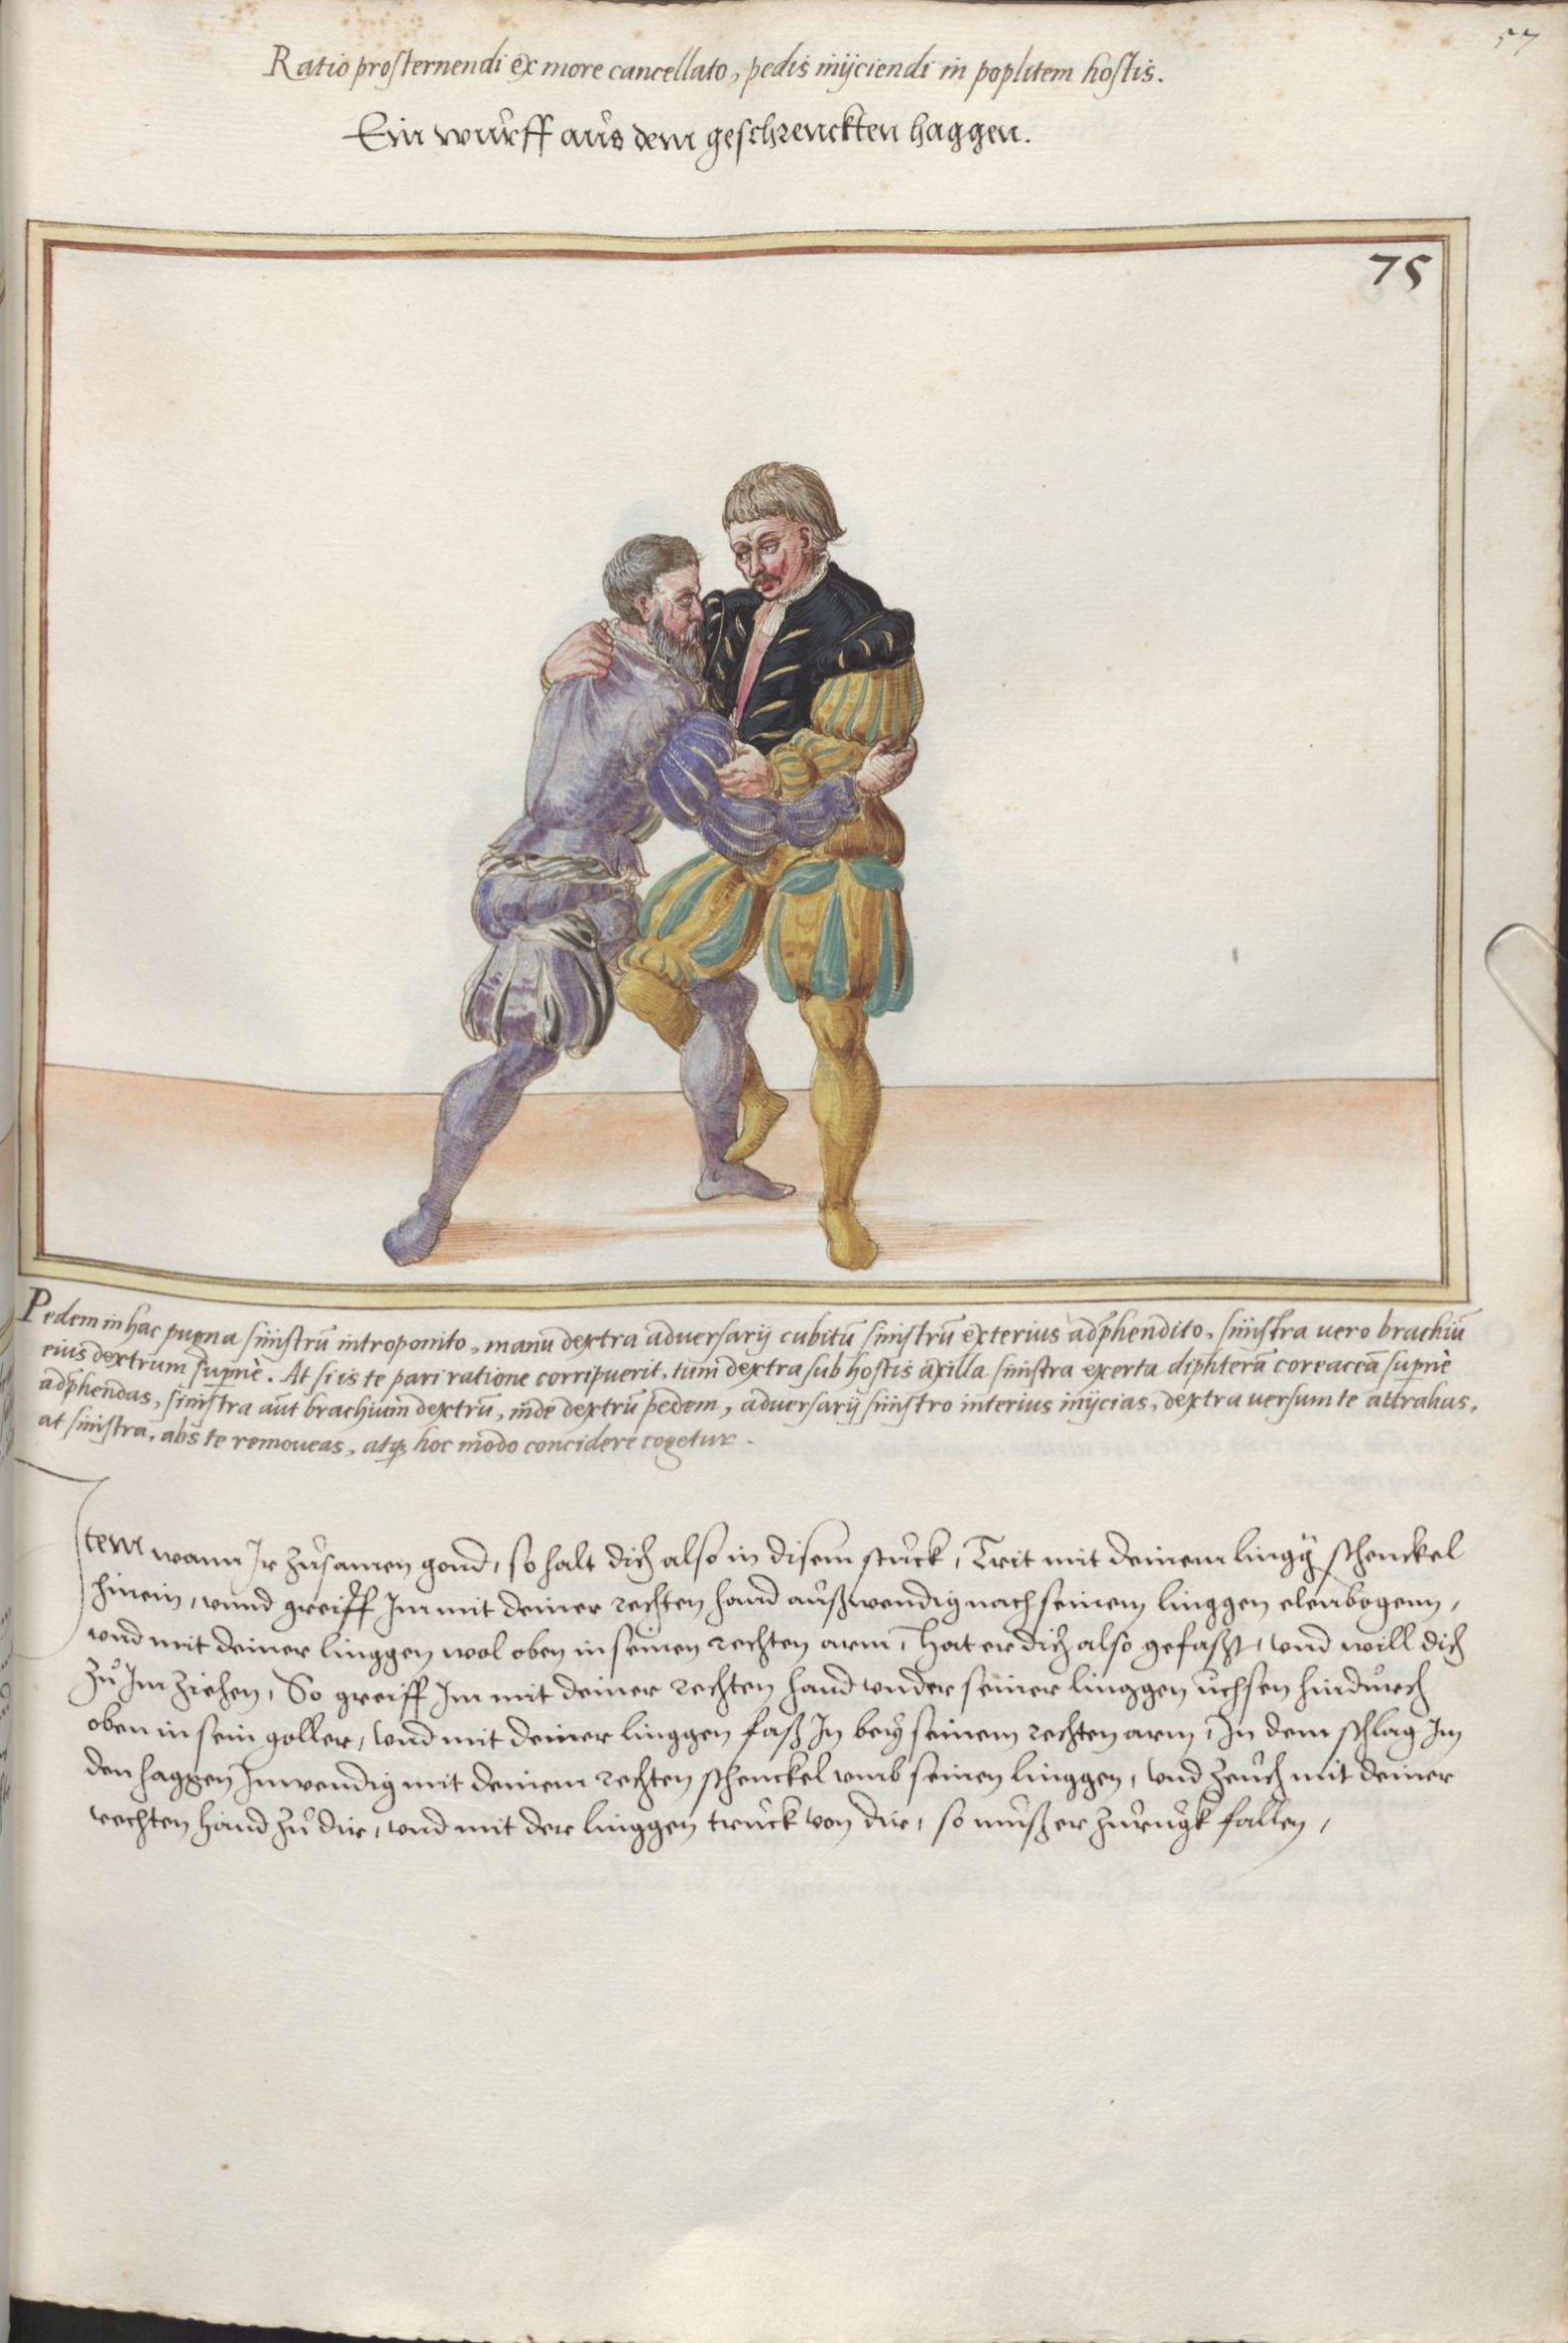 57
Ratio prosternendi ex more cancellato, pedis inijciendi in poplitem hostis.
Ein wůrff aůs dem geschrenckten haggen.
75
Pedem in hac pugna sinistrū introponito, manu dextra adversarij cubitū sinistrū exterius adp̄hendito, sinistra uero brachiū
eius dextrum supnè. At si is te pari ratione corripuerit, tum dextra sub hostis axilla sinistra exerta diphterā coreaceā supnè
adp̄hendas, sinistra aūt brachium dextrū, inde dextrū pedem, adversarij sinistro interius inijcias, dextra uersum te attrahas,
at sinistra, abs te remoueas, atq; hoc modo concidere cogetur.
Item wann Jr zůsamen gond, so halt dich also in disem stuck, Trit mit deinem lingg̃ schenckel
hinein, vnnd greiff Jm mit deiner rechten hand außwendig nach seinem linggen elenbogenn,
vnd mit deiner linggen wol oben in seinen rechten arm, hat er dich also gefaßt, vnd will dich
zů Jm ziehen, So greiff Jm mit deiner rechten hand vnder seiner linggen ůchsen hindurch
oben in sein goller, vnd mit deiner linggen faß Jn beÿ seinem rechten arm, Jn dem schlag Jm
den haggen Jnwendig mit deinem rechten schenckel vmb seinen linggen, vnd zeuch mit deiner
rechten hand zů dir, vnd mit der linggen truck von dir, so můß er zůrugk fallen,